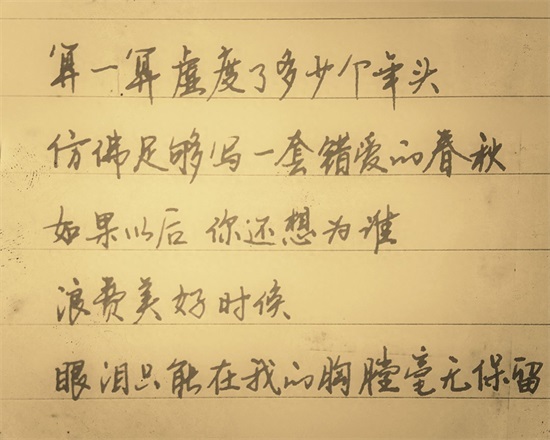 算一算虚度了多少个年头
仿佛足够写一套错爱的春秋
如果以后 你还想为谁
浪费美好时候
眼泪只能在我的胸膛毫无保留